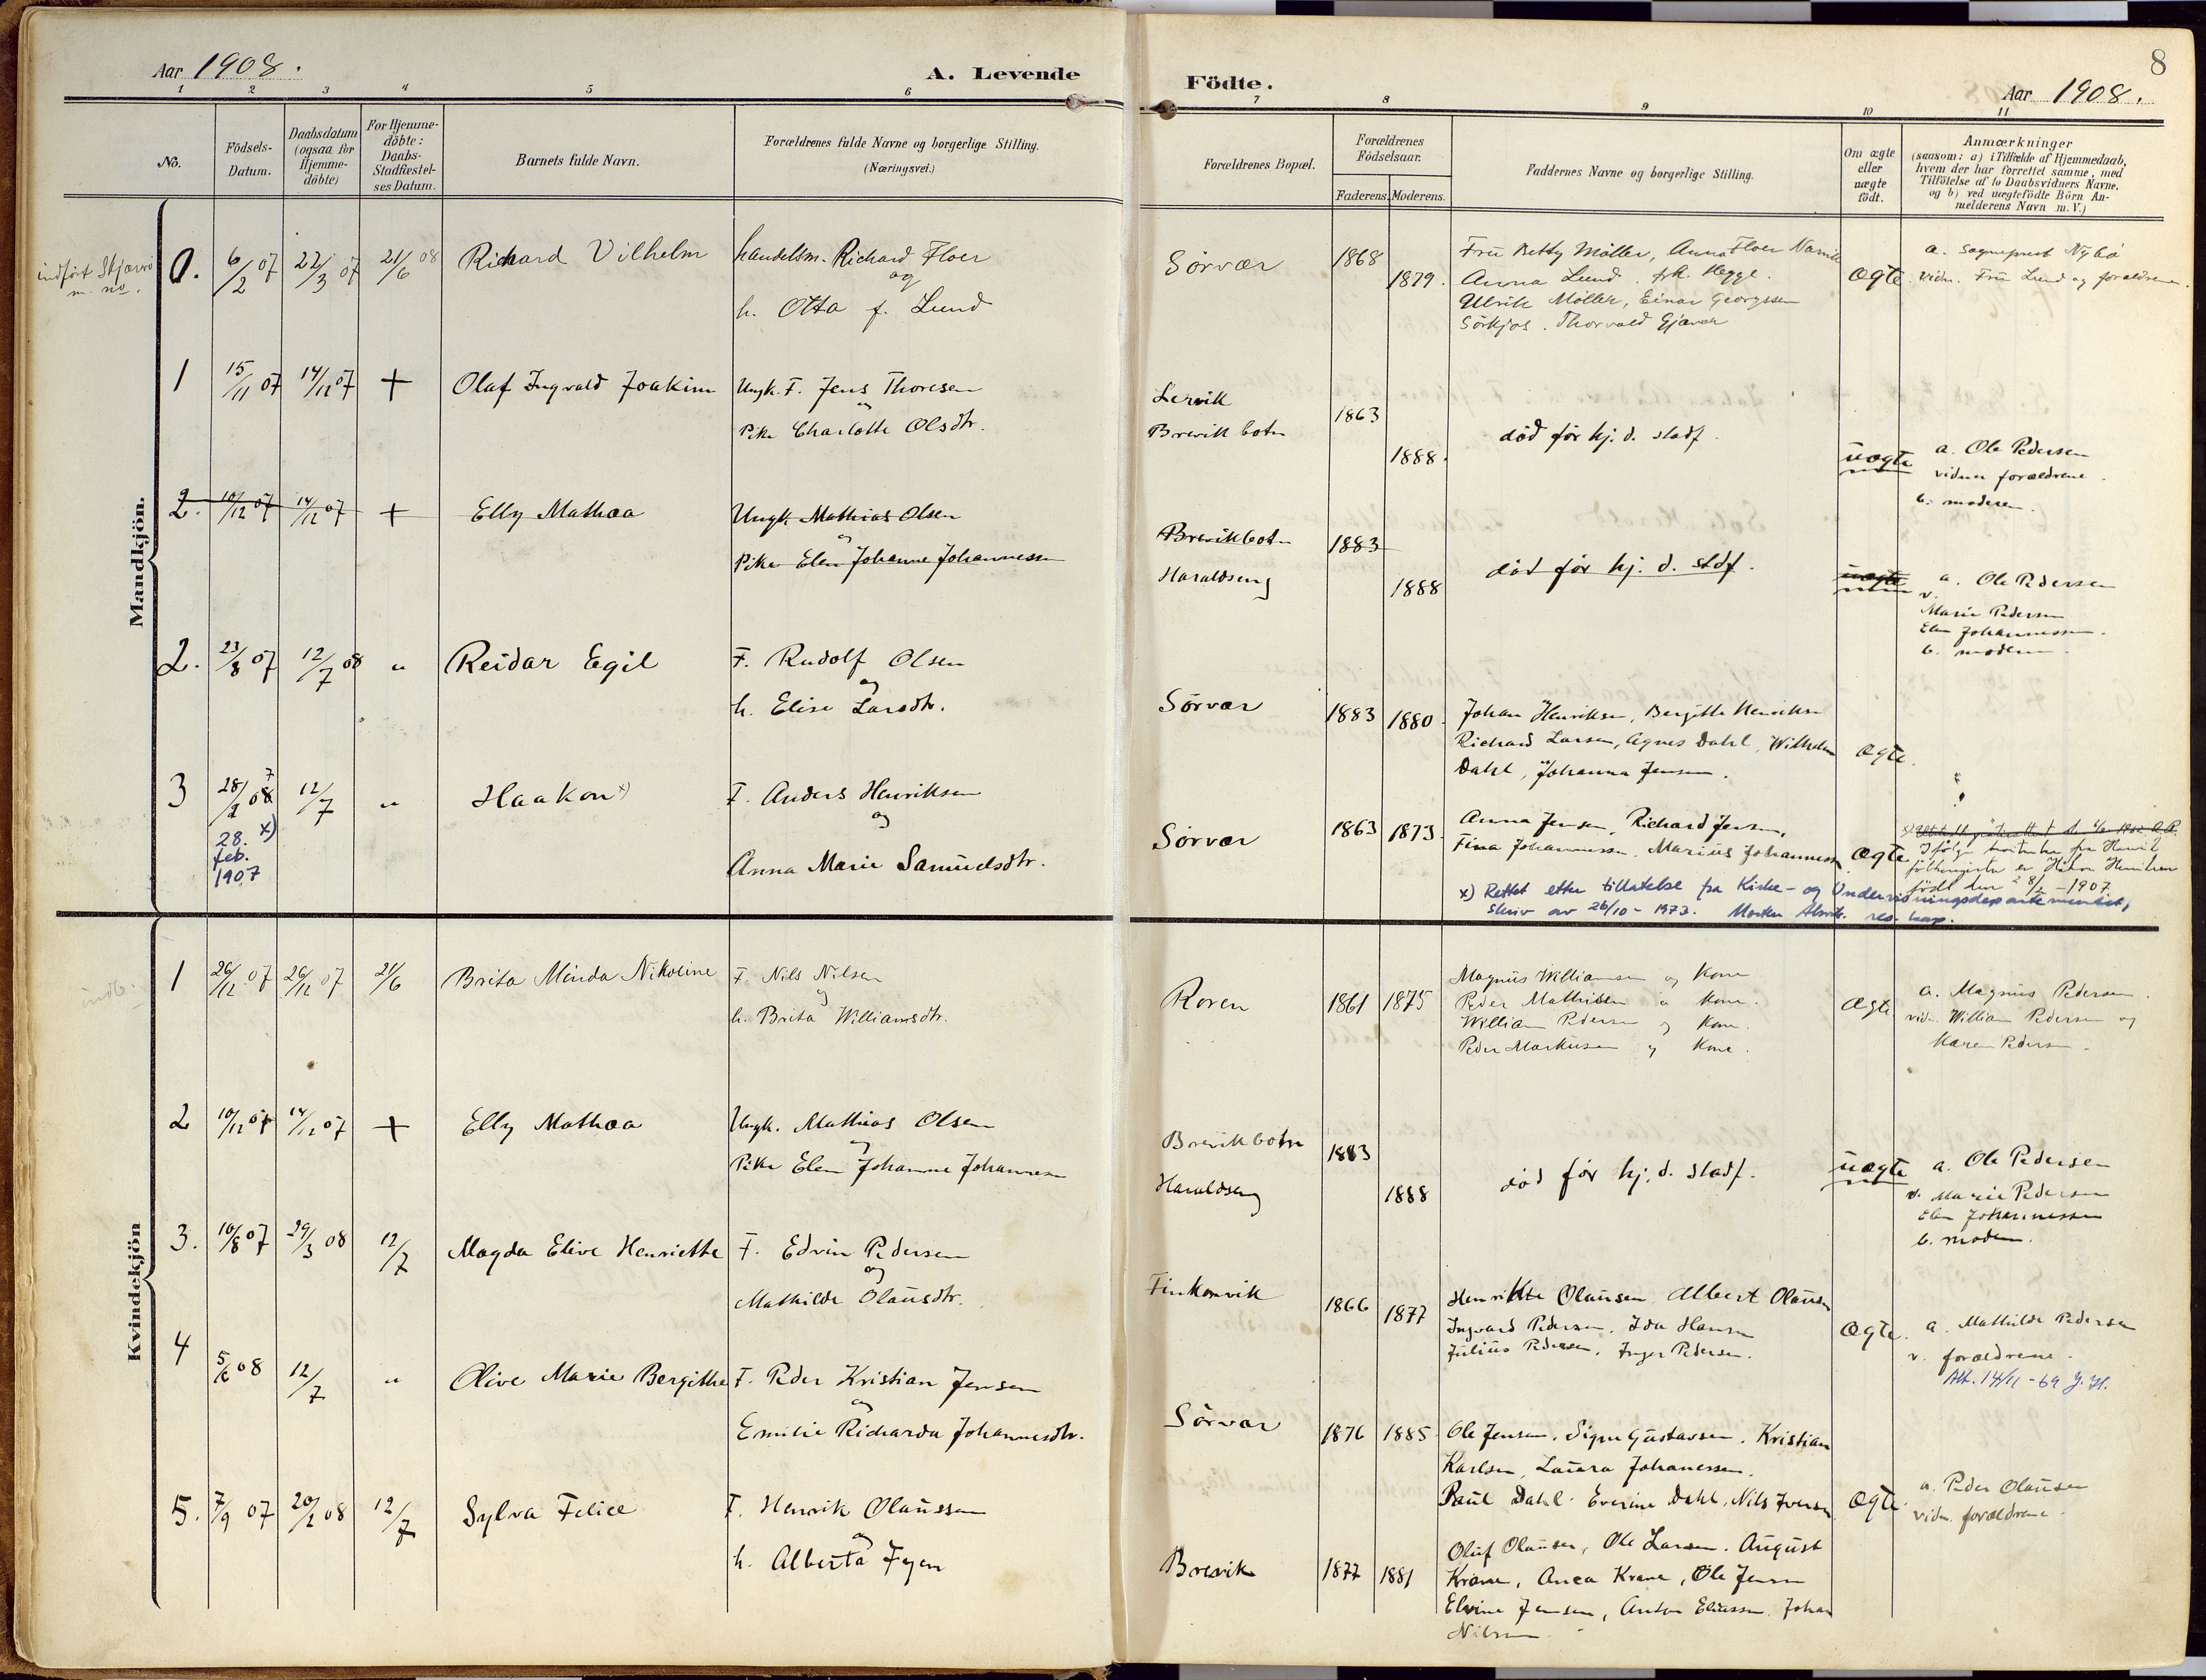 Aar 1908.
A. Levende
1 2 3 4 5 6
No.
Födsels-
Datum.
Daabsdatum
(ogsaa for
Hjemme-
döbte)
For Hjemme-
döbte:
Daabs-
Stadfæstel-
ses Datum.
Barnets fulde Navn.
Forældrenes fulde Navne og borgerlige Stilling.
(Næringsvei.)
Mandkjön.
indført
m. no.
0. 6/2 07 22/3 07 21/6 08 Richard Vilhelm handelsm. Richard Floer
og
h. Otta f. Lund
1 15/11 07 14/12 07 + Olaf Ingvald Joakim Ungk. F. Jens Thoresen
og
Pike Charlotte Olsdtr.
2. 10/12 07 14/12 07 + Elly Mathea Ungk. Mathias Olsen
og
Pike Elen Johanne Johannessen
2. 23/8 07 12/7 08 " Reidar Egil F. Rudolf Olsen
og
h. Elise Larsdtr.
3 28/2 08 7 12/7 " Haakon x) F. Anders Henriksen
og
Anna Marie Samuelsdtr.
28. x)
feb.
1907
Kvindekjön
indb.
1 26/12 07 26/12 07 21/6 Brita Minda Nikoline F. Nils Nilsen
og
h. Brita Williamsdtr.
2 10/12 07 14/12 07 + Elly Mathea Ungk. Mathias Olsen
og
Pike Elen Johanne Johannesen
3. 10/8 07 29/3 08 12/7 Magda Elive Henriette F. Edvin Pedersen
og
Mathilde Olausdtr.
4 5/6 08 12/7 " Olive Marie Bergithe F. Peder Kristian Jensen
og
Emilie Richarda Johannesdtr.
5. 7/9 07 20/2 08 12/7 Sylva Felice F. Henrik Olaussen
og
h. Alberta Fyen
8
Födte.
Aar 1908.
7 8 9 10 11
Forældrenes Bopæl.
Forældrenes
Födselsaar.
Faderens. Moderens.
Faddernes Navne og borgerlige Stilling.
Om ægte
eller
uægte
födt.
Anmærkninger
(saasom: a) i Tilfælde af Hjemmedaab,
hvem der har forrettet samme, med
Tilföielse af to Daabsvidners Navne.
og b) ved uægtefödte Börn An-
melderens Navn m. V.)
Sörvær 1868 1879. Fru Betty Möller, Anna Floer
Anna Lund. frk. Hegge.
Ulrik Möller, Einar Georgssen
Sörkjos. Thorvald Gjæver
ægte. a. Sogneprest Nybö
vidn. Fru Lund og forældrene.
Lervik
Brevikbotn 1863 1888. död för hj. d. stadf.
uægte a. Ole Pedersen
vidner forældrene.
b. moderen.
Brevikbotn
Haraldseng 1883 1888 död för hj. d. stdf.
uægte a. Ole Pedersen
v.
Marie Pedersen
Elen Johannessen.
b. moderen.
Sörvær 1883 1880. Johan Henriksen, Bergitte Henriksen
Richard Larsen, Agnes Dahl, Wilhelm
Dahl, Johanna Jensen.
ægte.
Sörvær 1863 1873. Anna Jensen, Richard Jensen,
Fina Johannessen. Marius Johannessen
ægte
Ifölge fra
folkeregister er Håkon Henriksen
födt den 28/2 - 1907
x) Rettet etter tillatelse fra Kirke- og Undervisningsdepartementet,
skriv av 26/10 - 1973. res. kap.
Roren 1861 1875 Magnus Williamsen og Kone
Peder Mathisen og Kone.
William Pedersen og Kone.
Peder Markusen og Kone.
Ægte a. Magnus Pedersen.
vidn. William Pedersen og
Karen Pedersen.
Brevikbotn
Haraldseng 1883 1888 död för hj. d. stadf.
uægte a. Ole Pedersen
v. Marie Pedersen
Elen Johannessen
b. modern.
Finkonvik 1866 1877 Henriette Olausen Albert Olausen
Ingvard Pedersen. Ida Hansen
Julius Pedersen. Inger Pedersen.
Ægte. a. Mathilde Pedersen
v. forældrene.
Att. 14/11 - 69 J.H.
Sörvær 1876 1885. Ole Jensen. Signe Gustavsen. Kristian
Karlsen, Laura Johanessen.
Paul Dahl. Everine Dahl, Nils Iversen
Ægte. a. Peder Olausen
vidn. forældrene.
Brevik 1877 1881 Oluf Olausen, Ole Larsen. August
Krane, Anea Krane, Ole Jensen
Elvine Jensen, Anton Eliassen. Johan
Nilsen